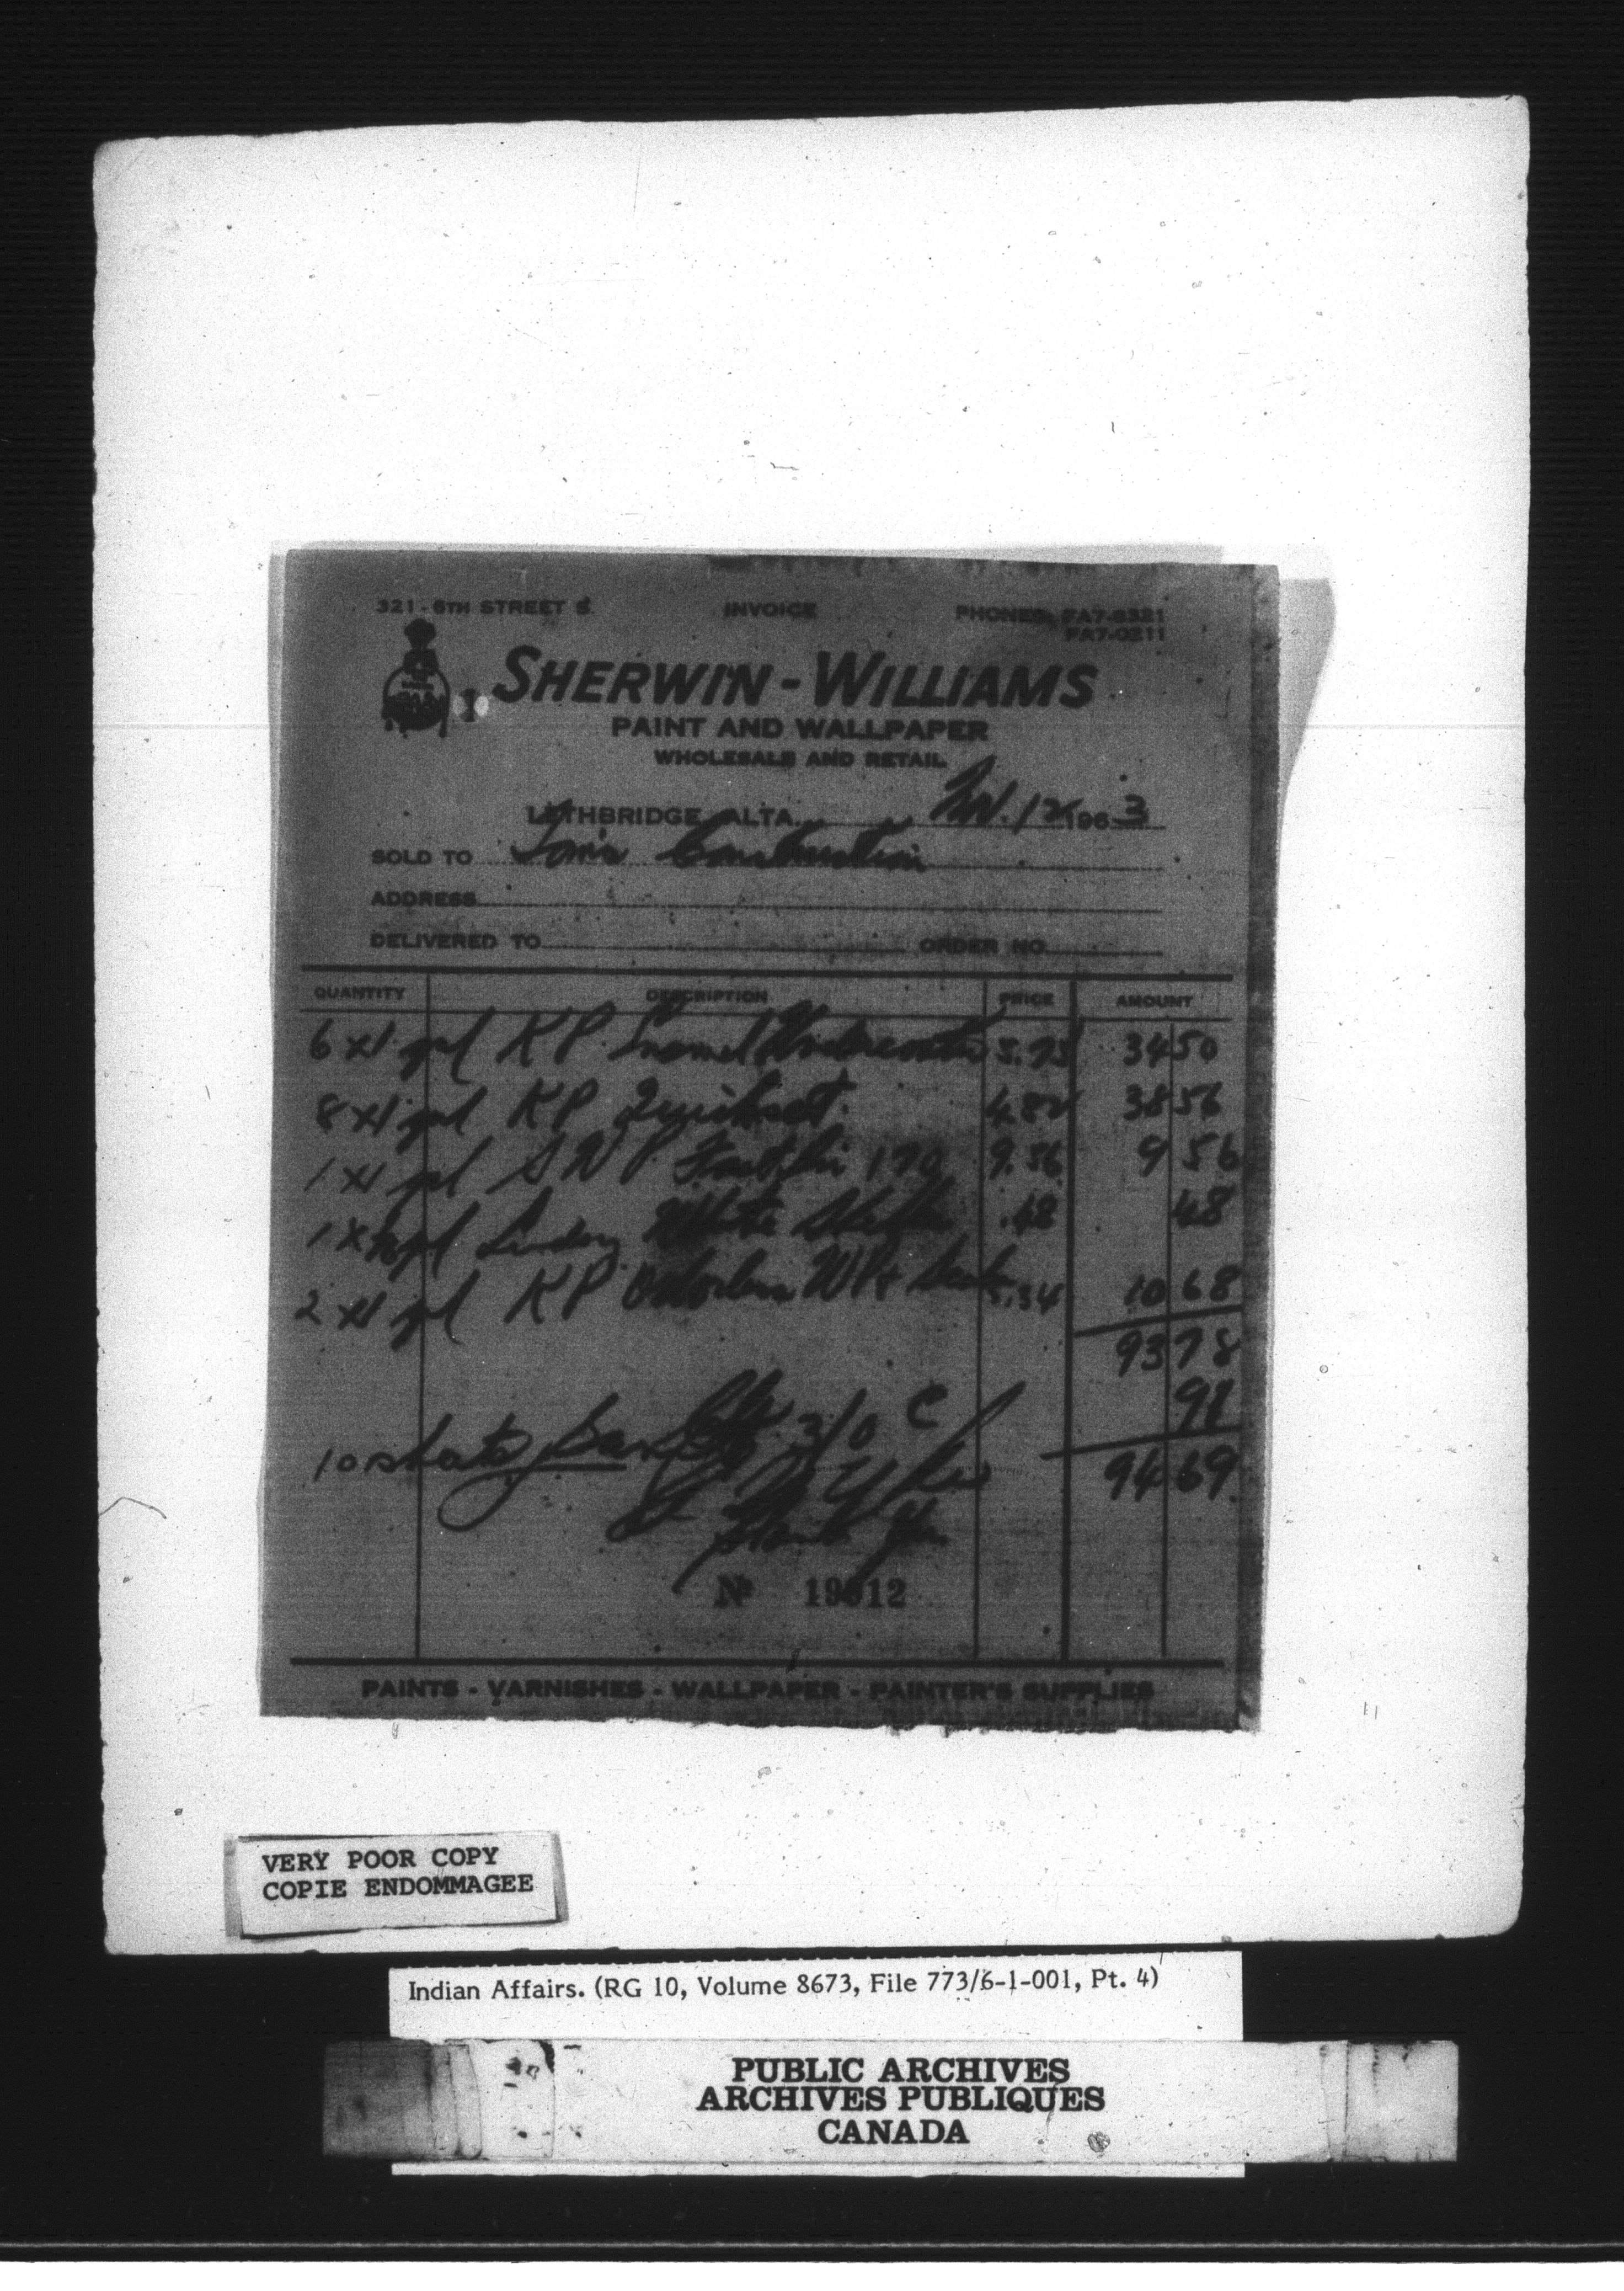 321 - 6TH STREET S. INVOICE PHONES: FA7-8321
FA7-0211
SHERWIN-WILLIAMS
PAINT AND WALLPAPER
WHOLESALE AND RETAIL
LETHBRIDGE, ALTA. 12 1963
SOLD TO Construction
ADDRESS
DELIVERED TO ORDER NO.
QUANTITY DESCRIPTION PRICE AMOUNT
6 x1 gal KP Enamel Undercoater 5.75 34 50
8 x1 gal KP 4.82 38 56
1 x1 gal SWP 170 9.56 9 56
1 x gal White .48 48
2 x1 gal KP 5.34 10 68
93 78
10 sheets 3/0 C 91
94 69
Thank You
No 19012
PAINTS - VARNISHES - WALLPAPER - PAINTER'S SUPPLIES
VERY POOR COPY
COPIE ENDOMMAGEE
Indian Affairs. (RG 10, Volume 8673, File 773/6-1-001, Pt. 4)
PUBLIC ARCHIVES
ARCHIVES PUBLIQUES
CANADA